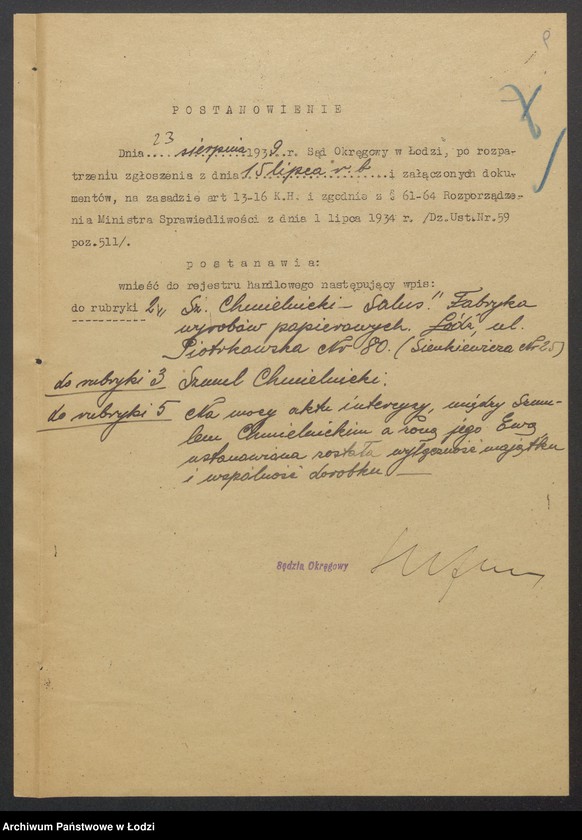 POSTANOWIENIE
Dnia 23 sierpnia 1939 r. Sąd Okręgowy w Łodzi, po rozpa-
trzeniu zgłoszenia z dnia 15 lipca r. b. i załączonych doku-
mentów, na zasadzie art 13-16 K.H. i zgodnie z § 61-64 Rozporządze-
nia Ministra Sprawiedliwości z dnia 1 lipca 1934 r. /Dz.Ust.Nr.59
poz.511/.
postanawia:
wnieść do rejestru handlowego następujący wpis:
do rubryki 2, Sz. Chmielnicki - Salus". Fabryka
wyrobów papierowych. Łódź, ul.
Piotrkowska Nr 80. (Sienkiewicza Nr 25)
do rubryki 3 Szmul Chmielnicki.
do rubryki 5 Na mocy aktu intercyzy, między Szmu-
lem Chmielnickim a żoną jego Ewą
ustanowiona została wyłączność majątku
i wspólność dorobku
Sędzia Okręgowy
Archiwum Państwowe w Łodzi